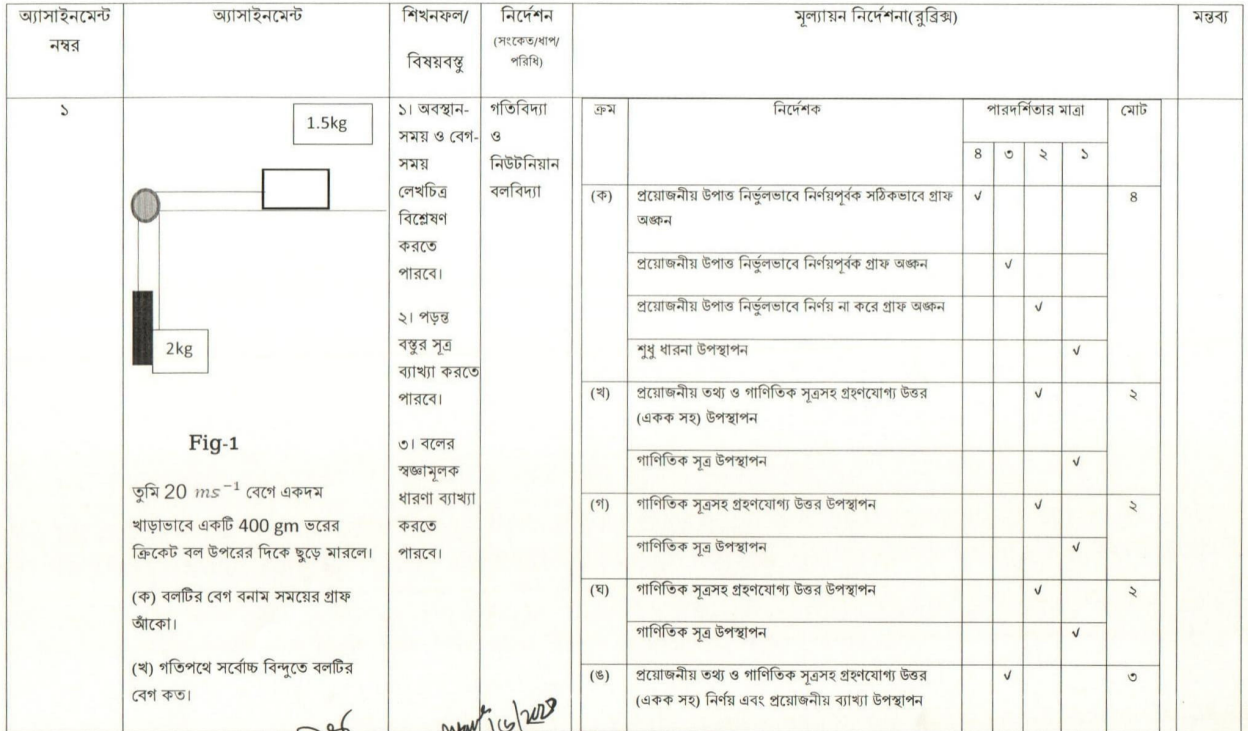 অ্যাসাইনমেন্ট নম্বর
অ্যাসাইনমেন্ট
শিখনফল/
বিষয়বস্তু
নির্দেশন
(সংকেত/ধাপ/
পরিধি)
মূল্যায়ন নির্দেশনা(রুব্রিক্স)
মন্তব্য
১
1.5kg
2kg
Fig-1
তুমি 20 ms⁻¹ বেগে একদম
খাড়াভাবে একটি 400 gm ভরের
ক্রিকেট বল উপরের দিকে ছুড়ে মারলে।
(ক) বলটির বেগ বনাম সময়ের গ্রাফ
আঁকো।
(খ) গতিপথে সর্বোচ্চ বিন্দুতে বলটির
বেগ কত।
১। অবস্থান-
সময় ও বেগ-
সময়
লেখচিত্র
বিশ্লেষণ
করতে
পারবে।
২। পড়ন্ত
বস্তুর সূত্র
ব্যাখ্যা করতে
পারবে।
৩। বলের
স্বজ্ঞামূলক
ধারণা ব্যাখ্যা
করতে
পারবে।
গতিবিদ্যা
ও
নিউটনিয়ান
বলবিদ্যা
ক্রম
নির্দেশক
পারদর্শিতার মাত্রা
মোট
৪ ৩ ২ ১
(ক) প্রয়োজনীয় উপাত্ত নির্ভুলভাবে নির্ণয়পূর্বক সঠিকভাবে গ্রাফ √ ৪
অঙ্কন
প্রয়োজনীয় উপাত্ত নির্ভুলভাবে নির্ণয়পূর্বক গ্রাফ অঙ্কন √
প্রয়োজনীয় উপাত্ত নির্ভুলভাবে নির্ণয় না করে গ্রাফ অঙ্কন √
শুধু ধারনা উপস্থাপন √
(খ) প্রয়োজনীয় তথ্য ও গাণিতিক সূত্রসহ গ্রহণযোগ্য উত্তর √ ২
(একক সহ) উপস্থাপন
গাণিতিক সূত্র উপস্থাপন √
(গ) গাণিতিক সূত্রসহ গ্রহণযোগ্য উত্তর উপস্থাপন √ ২
গাণিতিক সূত্র উপস্থাপন √
(ঘ) গাণিতিক সূত্রসহ গ্রহণযোগ্য উত্তর উপস্থাপন √ ২
গাণিতিক সূত্র উপস্থাপন √
(ঙ) প্রয়োজনীয় তথ্য ও গাণিতিক সূত্রসহ গ্রহণযোগ্য উত্তর √ ৩
(একক সহ) নির্ণয় এবং প্রয়োজনীয় ব্যাখ্যা উপস্থাপন